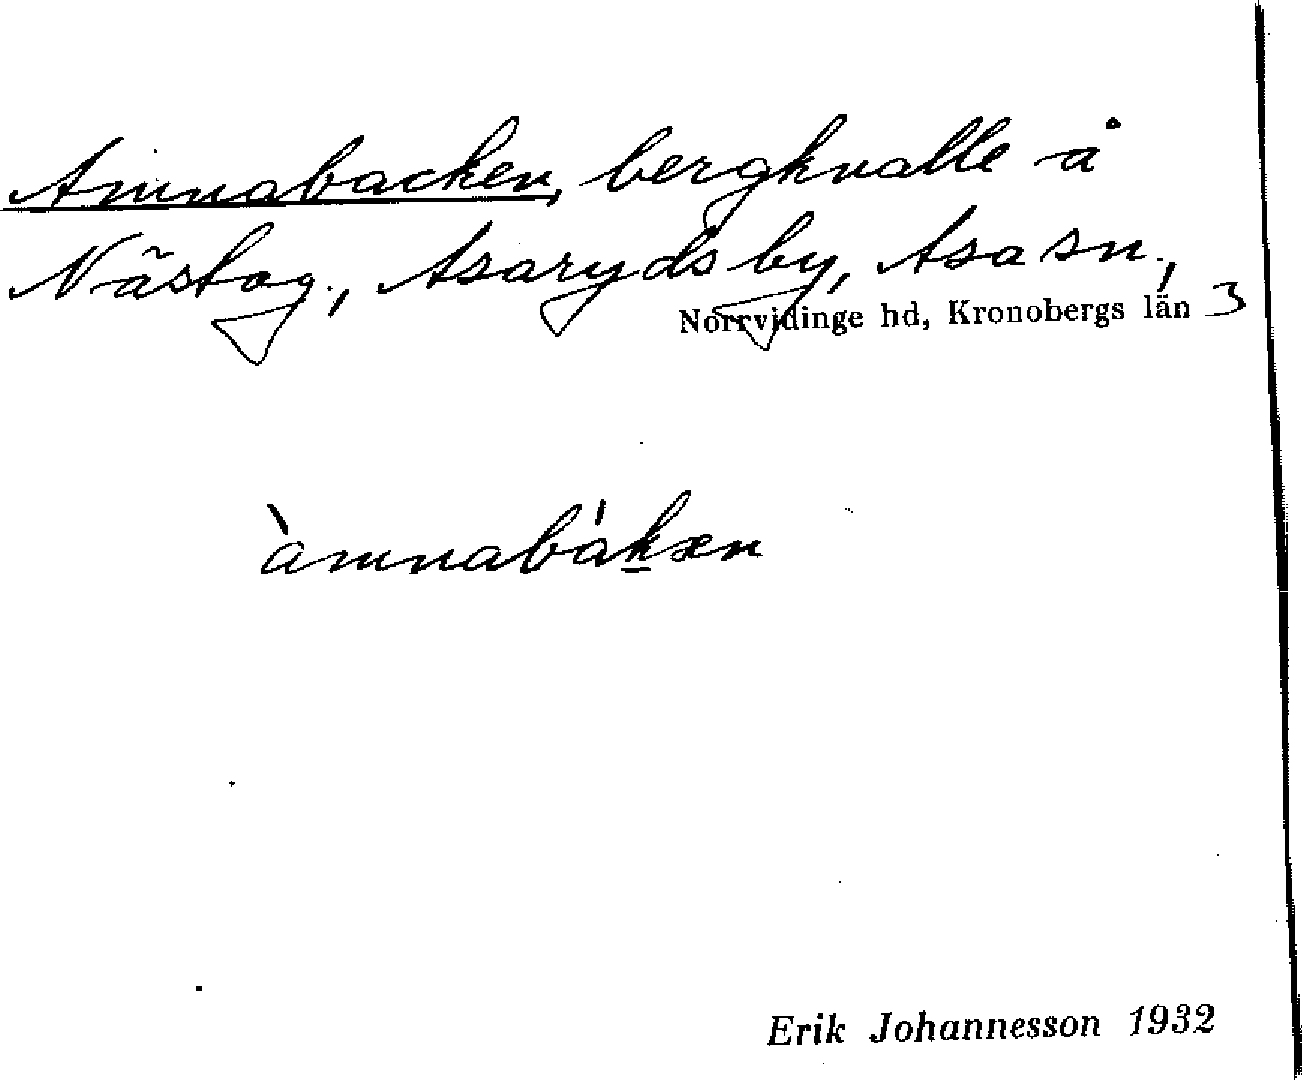 Amnabacken, bergknalle å
Nästog., Asaryds by, Asa sn.,
Norrvidinge hd, Kronobergs län 3
àmnabákæn
Erik Johannesson 1932